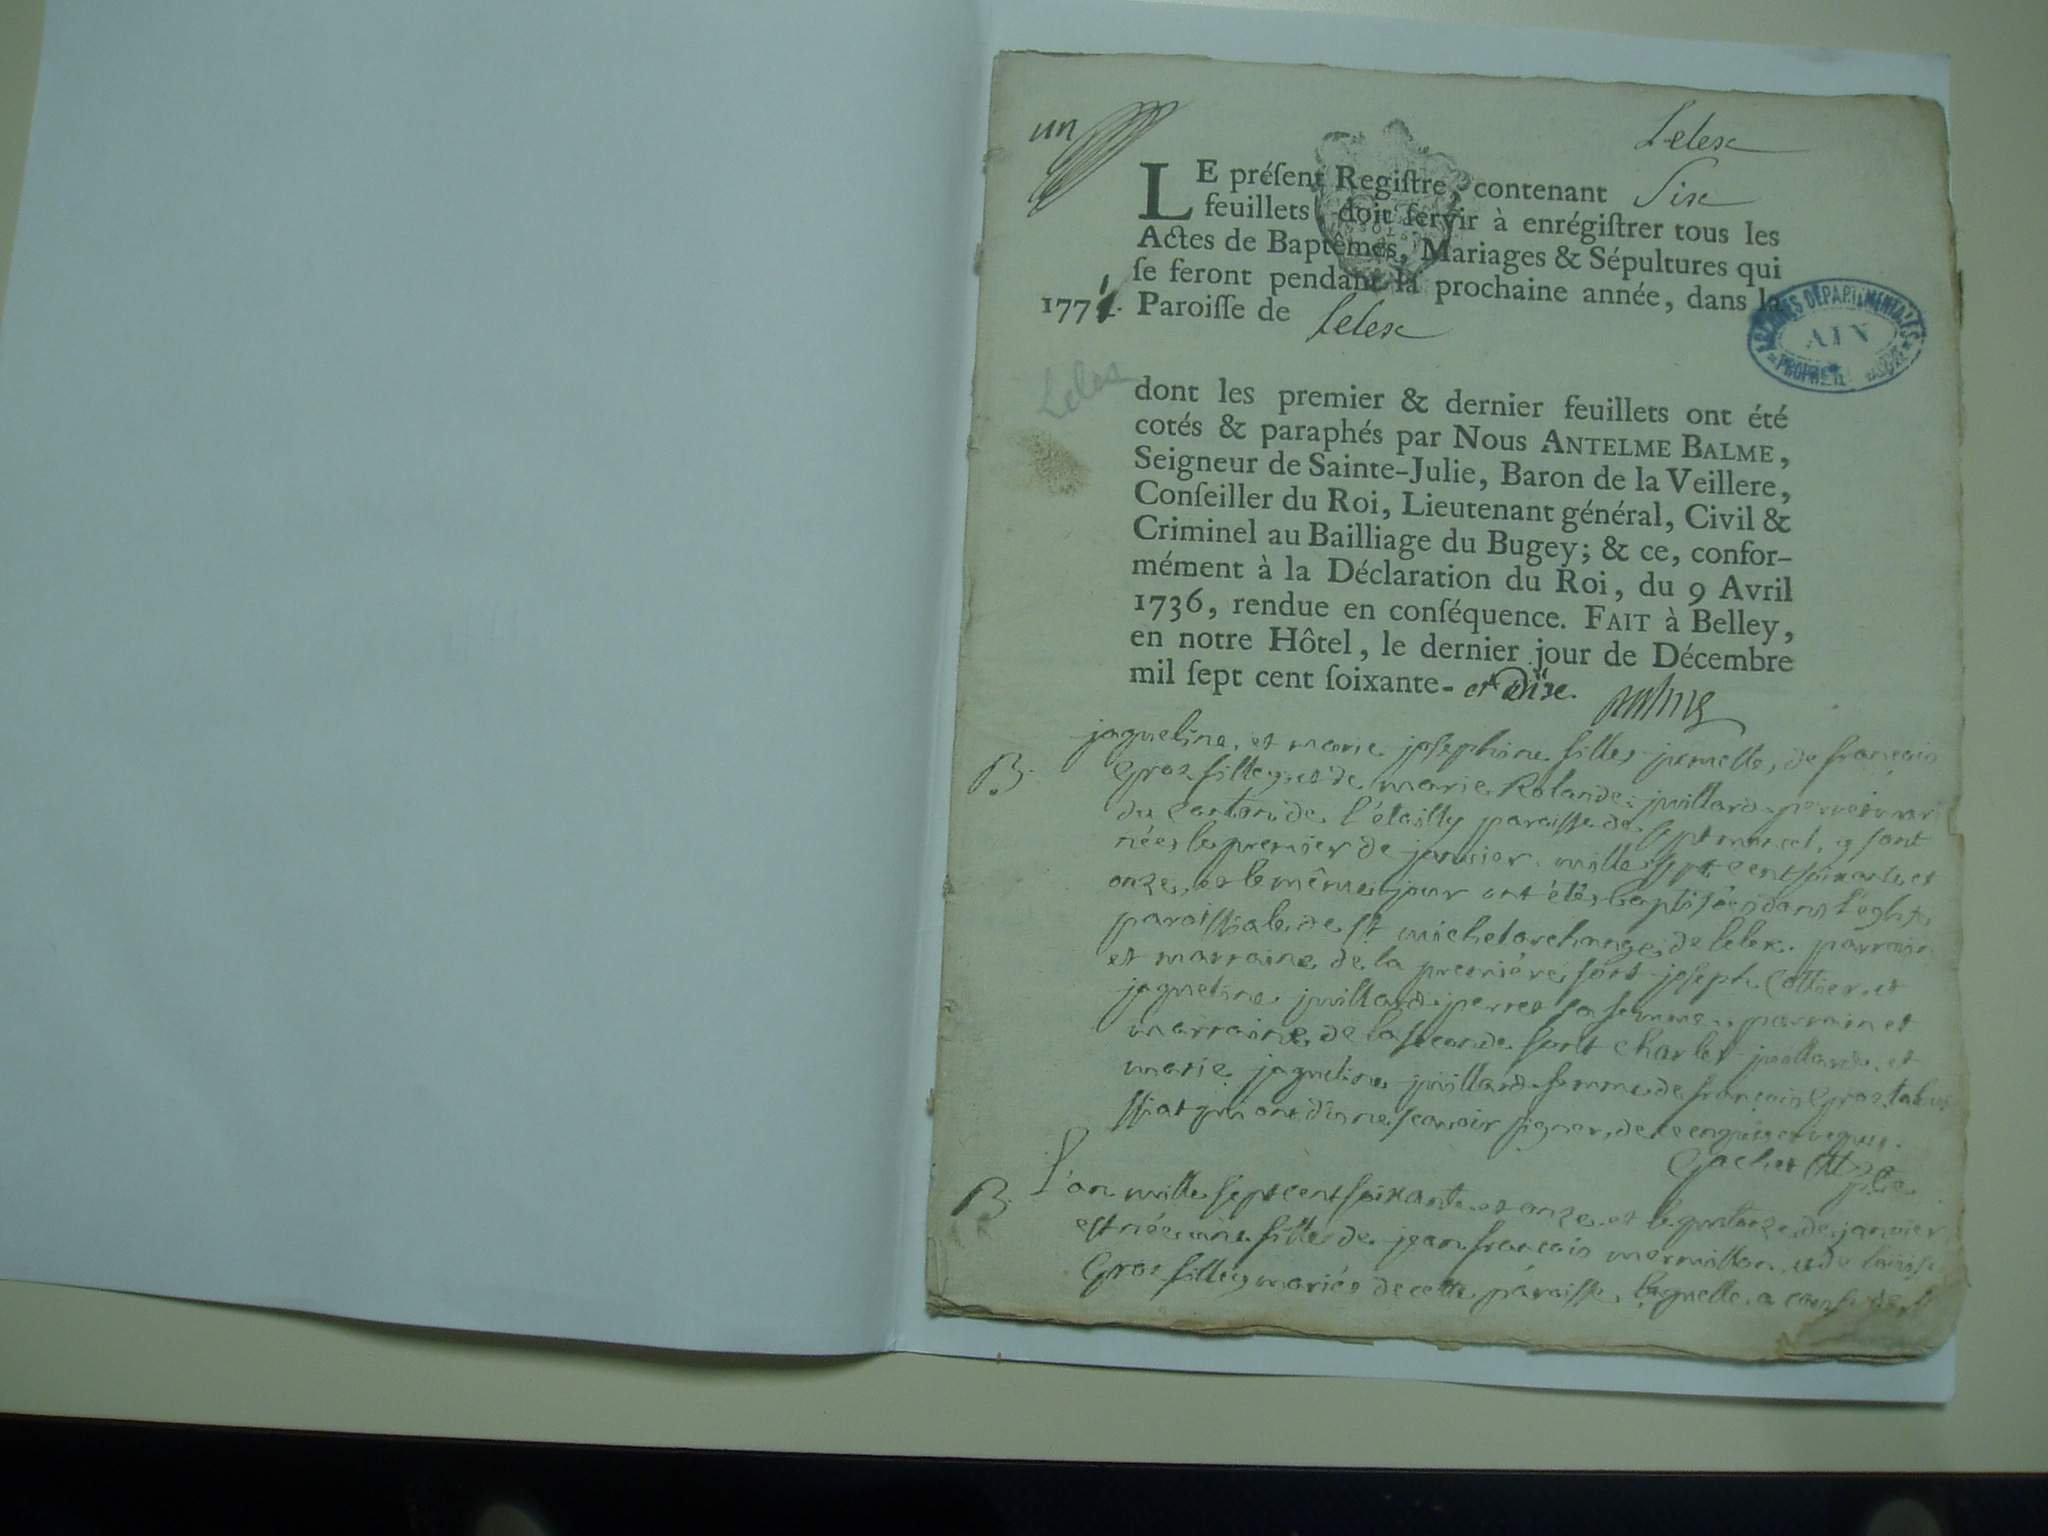 un
Lelex
LE préſent Regiſtre, contenant Six
feuillets, doit ſervir à enrégiſtrer tous les
Actes de Baptêmes, Mariages & Sépultures qui
ſe feront pendant la prochaine année, dans la
1771. Paroiſſe de Lelex
ARCHIVES DEPARTEMENTALES
AIN
Lelex
dont les premier & dernier feuillets ont été
cotés & paraphés par Nous ANTELME BALME,
Seigneur de Sainte-Julie, Baron de la Veillere,
Conſeiller du Roi, Lieutenant général, Civil &
Criminel au Bailliage du Bugey; & ce, confor-
mément à la Déclaration du Roi, du 9 Avril
1736, rendue en conſéquence. FAIT à Belley,
en notre Hôtel, le dernier jour de Décembre
mil ſept cent ſoixante- et dix.
jaqueline, et marie josephine filles jumelles, de françois
B. Gros filley, et de marie Rolande juillard perret mar
du canton de l'étailly paroisse de septmoncel, y sont
nées le premier de janvier mille sept cent soixante et
onze, et le même jour ont étés baptisées dans l'église
paroissiale de st michel archange de lelex. parrain
et marraine de la première sont joseph Cottier et
jaqueline juillard perret sa femme, parrain et
marraine de la seconde sont charles juillard, et
marie jaqueline juillard femme de françois Gros
qui ont dit ne scavoir signer, de ce enquis et requis.
B. L'an mille sept cent soixante et onze et le quinze de janvier
est née une fille de jean françois mermillon et de louise
Gros filley mariés de cette paroisse, laquelle a cause de